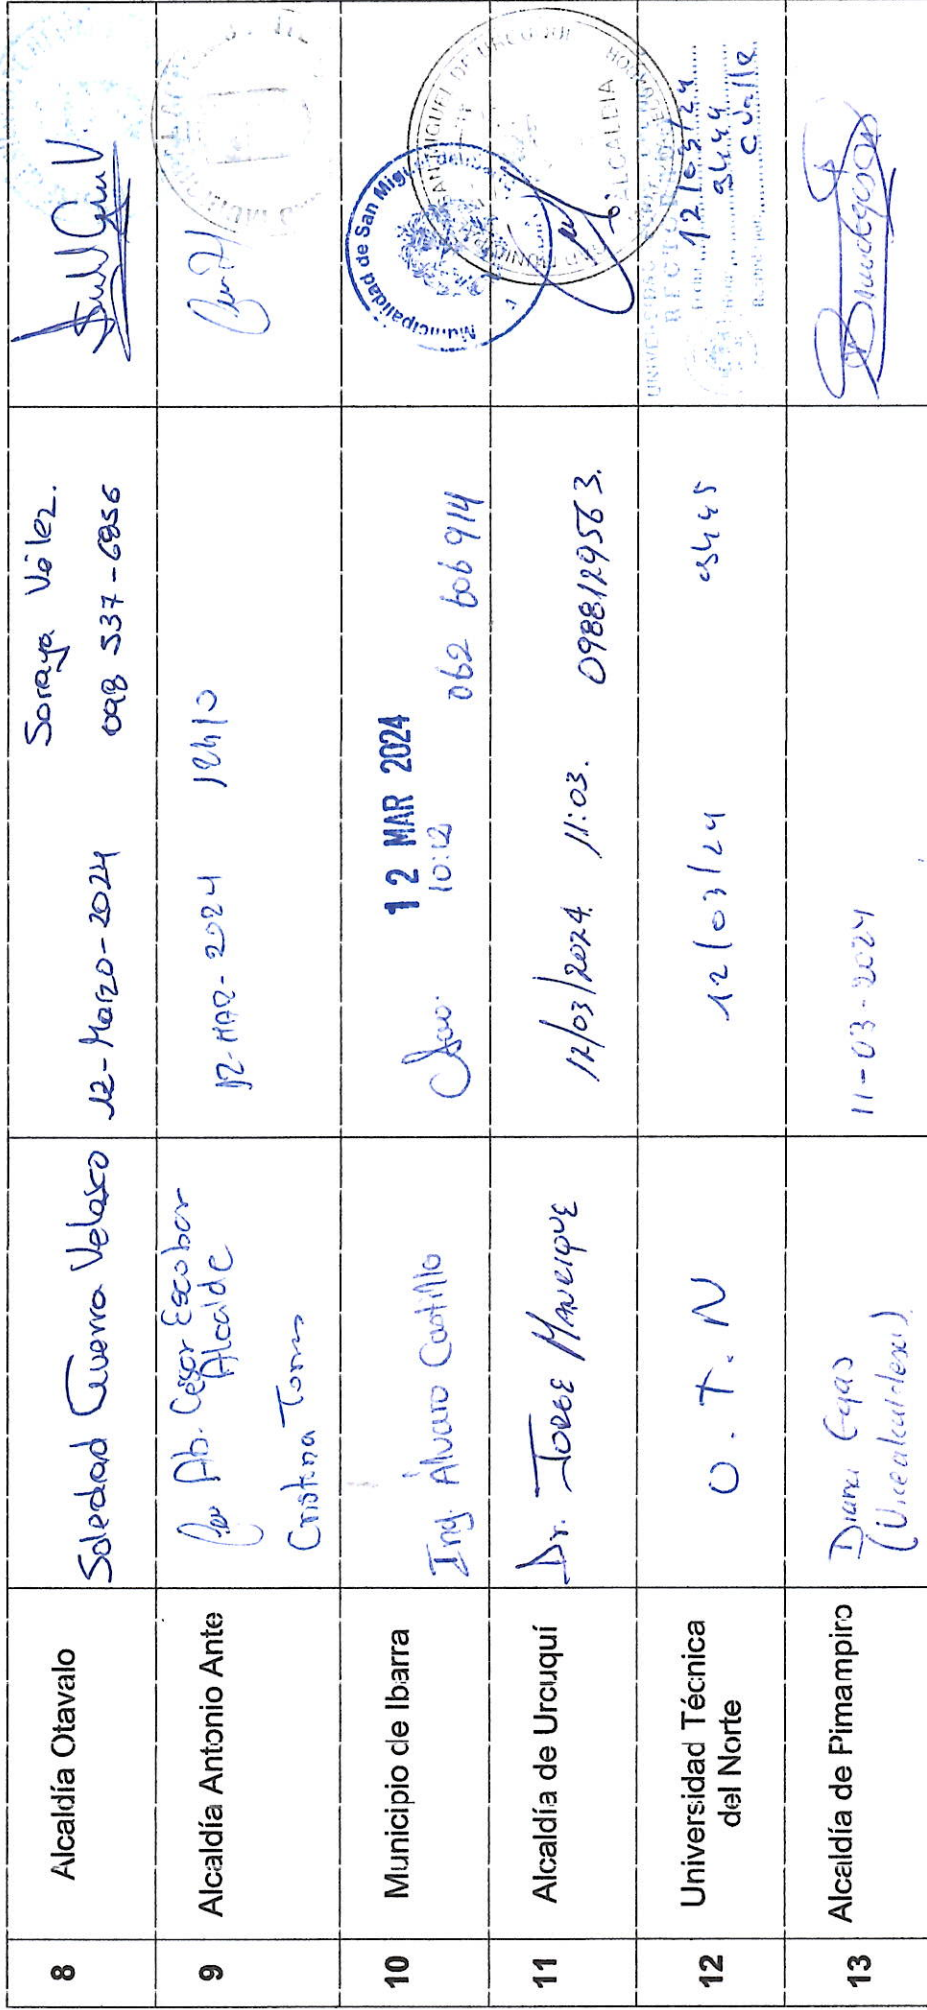 8
Alcaldía Otavalo
Soledad Guerra Velasco
Soraya Vélez.
12-Marzo-2024 098 537-6956
9
Alcaldía Antonio Ante
Ab. César Escobar
Alcalde
Cristina Torres
12-MAR-2024 12h10
10
Municipio de Ibarra
Ing. Álvaro Castillo
12 MAR 2024
10:12
062 606 914
Municipalidad de San Miguel
11
Alcaldía de Urcuquí
Dr. JORGE MANRIQUE
12/03/2024 11:03. 0988129563.
SAN MIGUEL DE URCUQUI
ALCALDIA
12
Universidad Técnica
del Norte
U.T.N
12/03/24 09h45
12/03/24
9h44
13
Alcaldía de Pimampiro
Diana Egas
(Vicealcaldesa)
11-03-2024